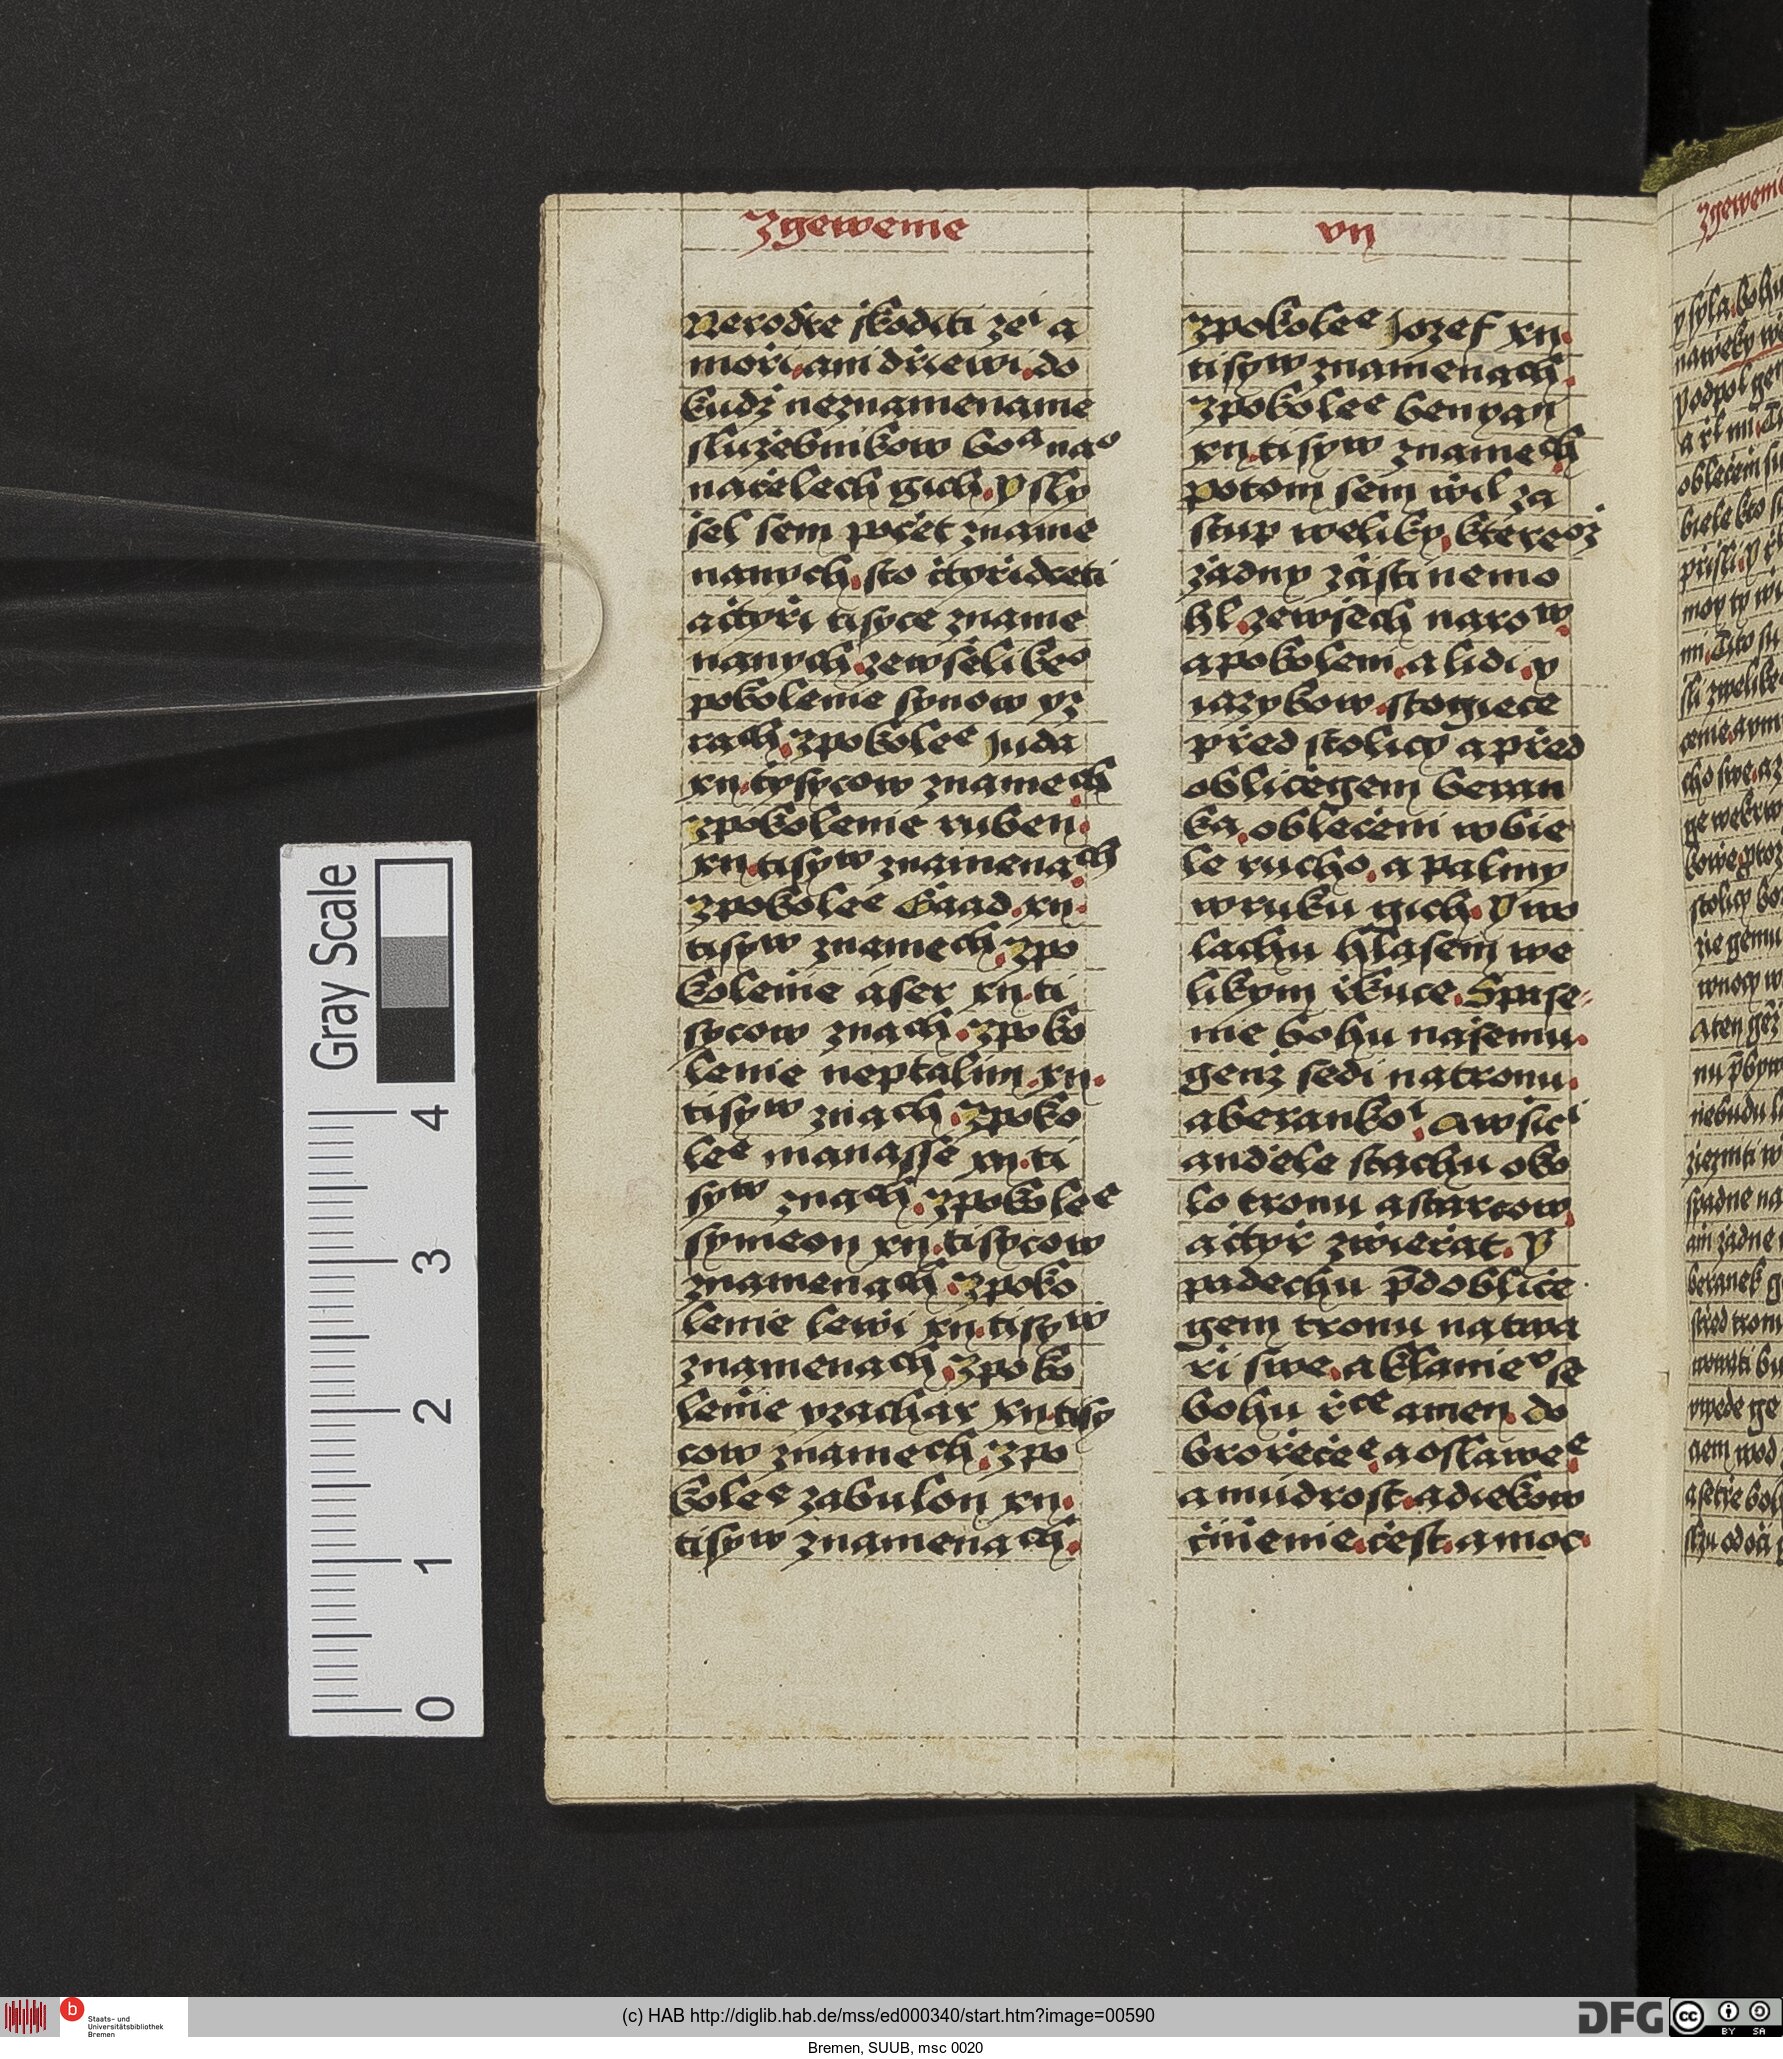 Zgewenie
vij
Nerodte sskoditi zeⁱ a
morzi ani drziewi do
kudz neznamename
sluzebnikow boᵃ naᵒ
na czelech gich y sly
ssel sem poczet zname
nanych sto cztyrzidceti
a cztyrzi tisyce zname
nanych ze wsselikeᵒ
pokolenie synow yz
rach z pokoleᵉ Juda
xii tysycow znamech
z pokolenie ruben
xii tisyʷ znamenach
z pokoleᵉ Gaad xii
tisyʷ znamech z po
kolenie aser xii ti
sycow znach z poko
lenie neptalim xii
tisyʷ znach z poko
leᵉ manasse xii ti
syʷ znach z pokoleᵉ
symeon xii tisycow
znamenach z poko
lenie lewi xii tisyʷ
znamenach z poko
lenie yzachar xii tisy
cow znamech z po
koleᵉ zabulon xii
tisyʷ znamenach
z pokoleᵉ Jozef xii
tisyʷ znamenach
z pokoleᵉ benyan
xii tisyʷ znamech
potom sem wil za
stup weliky ktereᵒz
zadny zcasti nemo
hl ze wssech narow
a pokoleni a lidi y
iazykow stogiece
przed stolicy a przed
obliczegem beran
ka obleczeni w bie
le rucho a palmy
w ruku gich y wo
lachu hlasem we
likym rzkuce Spase
nie bohu nassemu
genz sedi na tronu
a berankoⁱ A wsicⁱ
andele stachu oko
lo tronu a starcow
a cztyrz zwierat y
padechu p̄d oblicze
gem tronu na twa
rzi swe a klanieᵛ se
bohu rzᶜᵉ amen do
brorzeczeᵉ a oslaweᵉ
a mudrost a diekow
czinenie czest a moc
Gray Scale
4
3
2
1
0
b
Staats- und
Universitätsbibliothek
Bremen
(c) HAB http://diglib.hab.de/mss/ed000340/start.htm?image=00590
DFG
cc
BY SA
Bremen, SUUB, msc 0020